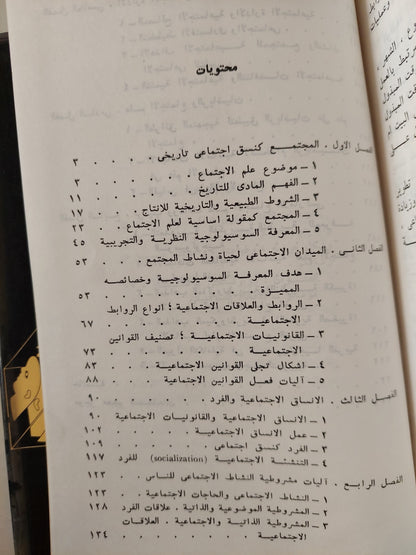 محتويات
الفصل الاول . المجتمع كنسق اجتماعى تأريخى . . . . ٣
١ – موضوع علم الاجتماع . . . . . . . ٣
٢ – الفهم المادى للتاريخ . . . . . . . ١١
٣ – الشروط الطبيعية والتاريخية للانتاج . . . . ١٧
٤ – المجتمع كمقولة اساسية لعلم الاجتماع . . . . ٢٣
٥ – المعرفة السوسيولوجية النظرية والتجريبية ٤٥
الفصل الثانى . الميدان الاجتماعى لحياة ونشاط المجتمع . . . ٥٣
١ – هدف المعرفة السوسيولوجية وخصائصه
المميزة . . . . . . . . . ٥٣
٢ – الروابط والعلاقات الاجتماعية ؛ انواع الروابط
الاجتماعية . . . . . . . . ٦٧
٣ – القانونيات الاجتماعية ؛ تصنيف القوانين
الاجتماعية . . . . . . . . ٧٣
٤ – اشكال تجلى القوانين الاجتماعية . . . . ٨٣
٥ – آليات فعل القوانين الاجتماعية . . . . ٨٨
الفصل الثالث . الانساق الاجتماعية والفرد . . . . . ٩٠
١ – الانساق الاجتماعية والقانونيات الاجتماعية ٩٠
٢ – عمل الانساق الاجتماعية . . . . . ١٠٢
٣ – الفرد كنسق اجتماعى . . . . . . ١٠٩
٤ – التنشئة الاجتماعية (socialization) للفرد ١١٧
الفصل الرابع . آليات مشروطية النشاط الاجتماعى للناس . . ١٢٣
١ – النشاط الاجتماعى والحاجات الاجتماعية . . ١٢٣
٢ – المشروطية الموضوعية والذاتية . علاقات الفرد ١٢٨
٣ – المشروطية الذاتية والاجتماعية . العلاقات
الاجتماعية . . . . . . . . ١٣٤